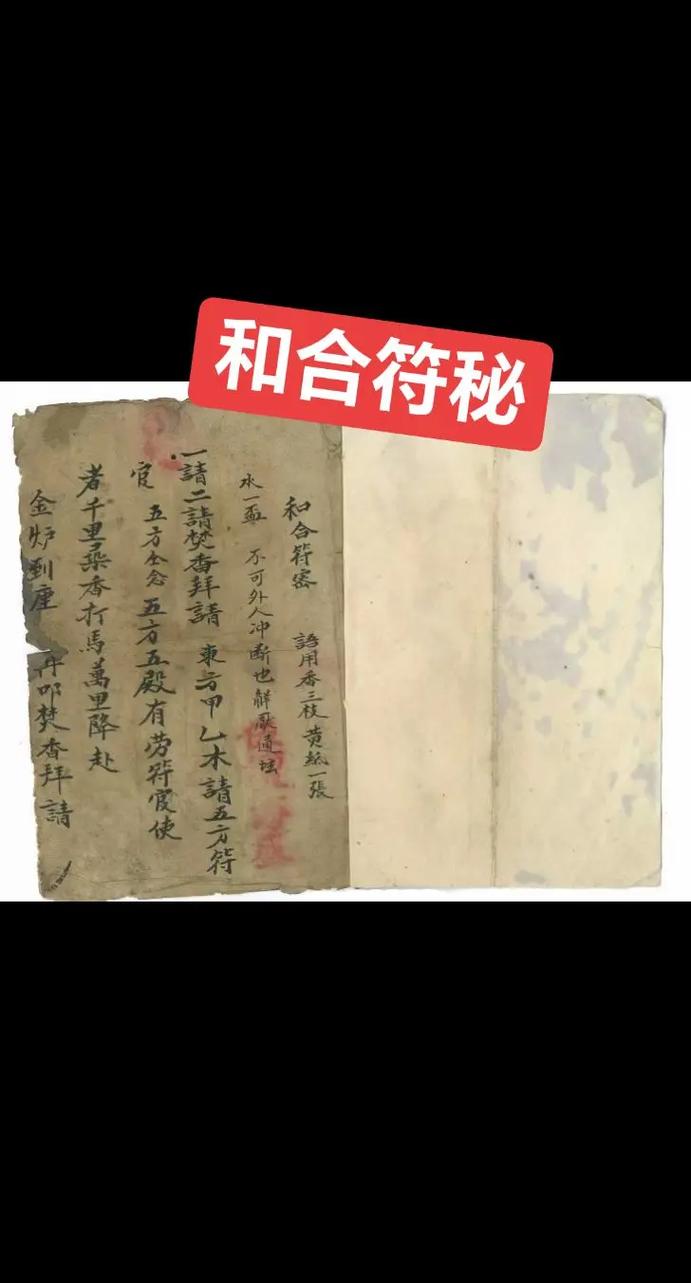 和合符秘
和合符密 語用香三枝黄紙一張
水一盃 不可外人冲断也解厭通坛
一請二請焚香拜請 東方甲乙木請五方符
官 五方仝念 五方五殿有劳符官使
者千里桑香打馬萬里降赴
金炉到座 再叩焚香拜請